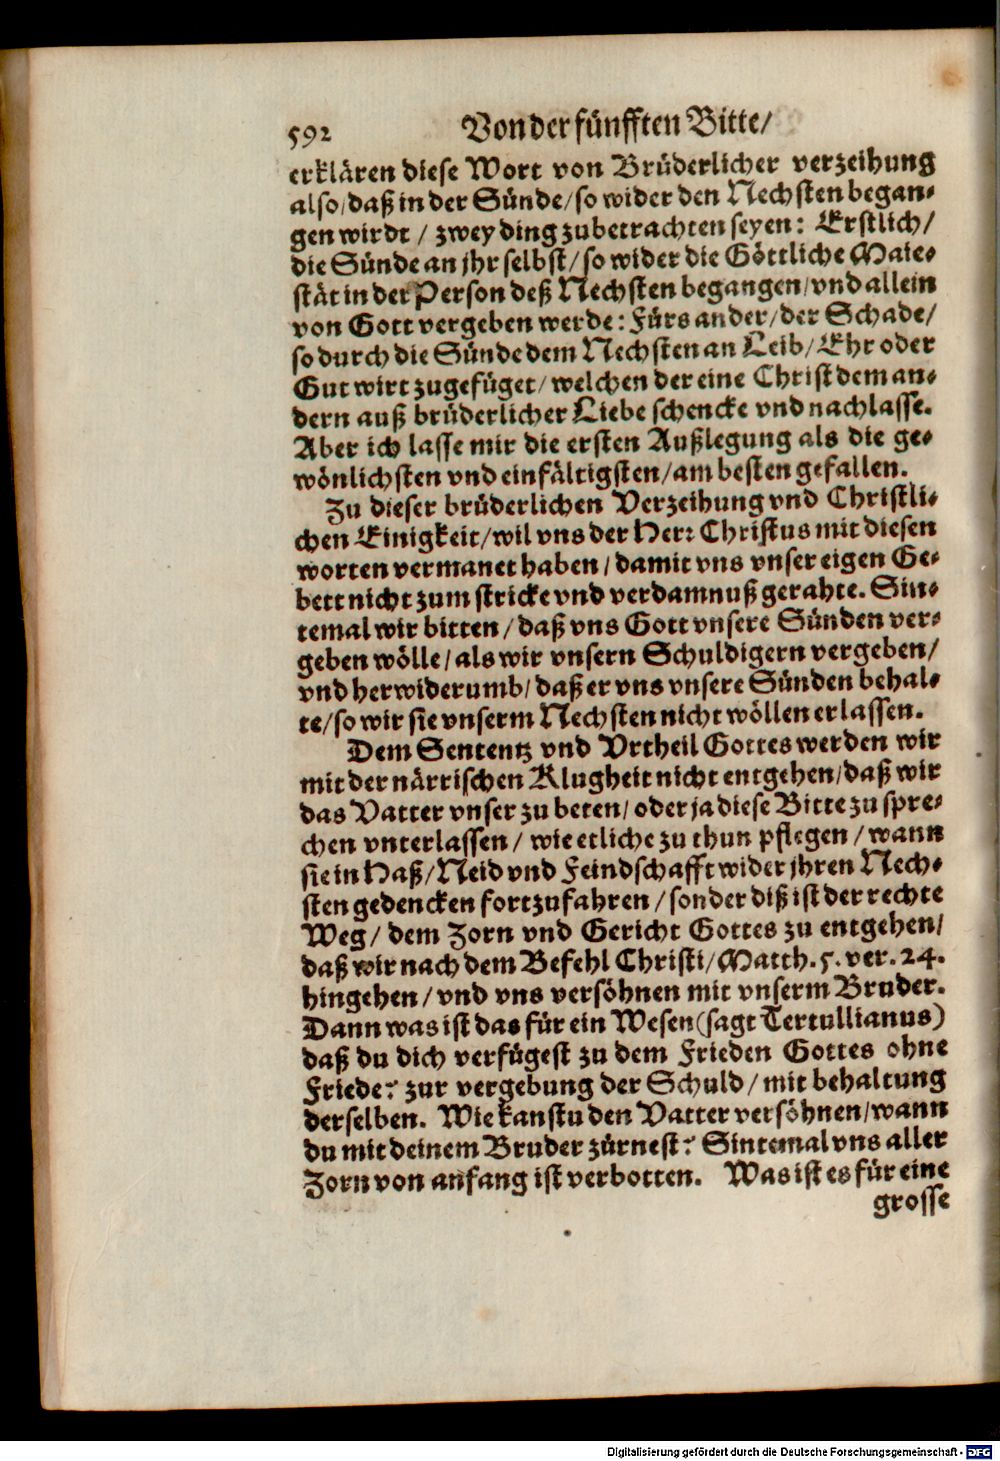 592 Von der fünfften Bitte/
erklären diese Wort von Brüderlicher verzeihung
also/ daß in der Sünde/ so wider den Nechsten began-
gen wirdt / zwey ding zubetrachten seyen: Erstlich/
die Sünde an jhr selbst/ so wider die Göttliche Maie-
stät in der Person deß Nechsten begangen/ vnd allein
von Gott vergeben werde: Fürs ander/ der Schade/
so durch die Sünde dem Nechsten an Leib/ Ehr oder
Gut wirt zugefüget/ welchen der eine Christ dem an-
dern auß brüderlicher Liebe schencke vnd nachlasse.
Aber ich lasse mir die ersten Außlegung als die ge-
wönlichsten vnd einfältigsten/ am besten gefallen.
Zu dieser brüderlichen Verzeihung vnd Christli-
chen Einigkeit/ wil vns der Herr Christus mit diesen
worten vermanet haben / damit vns vnser eigen Ge-
bett nicht zum stricke vnd verdamnuß gerahte. Sin-
temal wir bitten / daß vns Gott vnsere Sünden ver-
geben wölle/ als wir vnsern Schuldigern vergeben/
vnd herwiderumb/ daß er vns vnsere Sünden behal-
te/ so wir sie vnserm Nechsten nicht wöllen erlassen.
Dem Sententz vnd Vrtheil Gottes werden wir
mit der närrischen Klugheit nicht entgehen/ daß wir
das Vatter vnser zu beten/ oder ja diese Bitte zu spre-
chen vnterlassen / wie etliche zu thun pflegen / wann
sie in Haß/ Neid vnd Feindschafft wider jhren Nech-
sten gedencken fortzufahren / sonder diß ist der rechte
Weg/ dem Zorn vnd Gericht Gottes zu entgehen/
daß wir nach dem Befehl Christi/ Matth. 5. ver. 24.
hingehen / vnd vns versöhnen mit vnserm Bruder.
Dann was ist das für ein Wesen (sagt Tertullianus)
daß du dich verfügest zu dem Frieden Gottes ohne
Friede? zur vergebung der Schuld / mit behaltung
derselben. Wie kanstu den Vatter versöhnen/ wann
du mit deinem Bruder zürnest? Sintemal vns aller
Zorn von anfang ist verbotten. Was ist es für eine
grosse
Digitalisierung gefördert durch die Deutsche Forschungsgemeinschaft - DFG